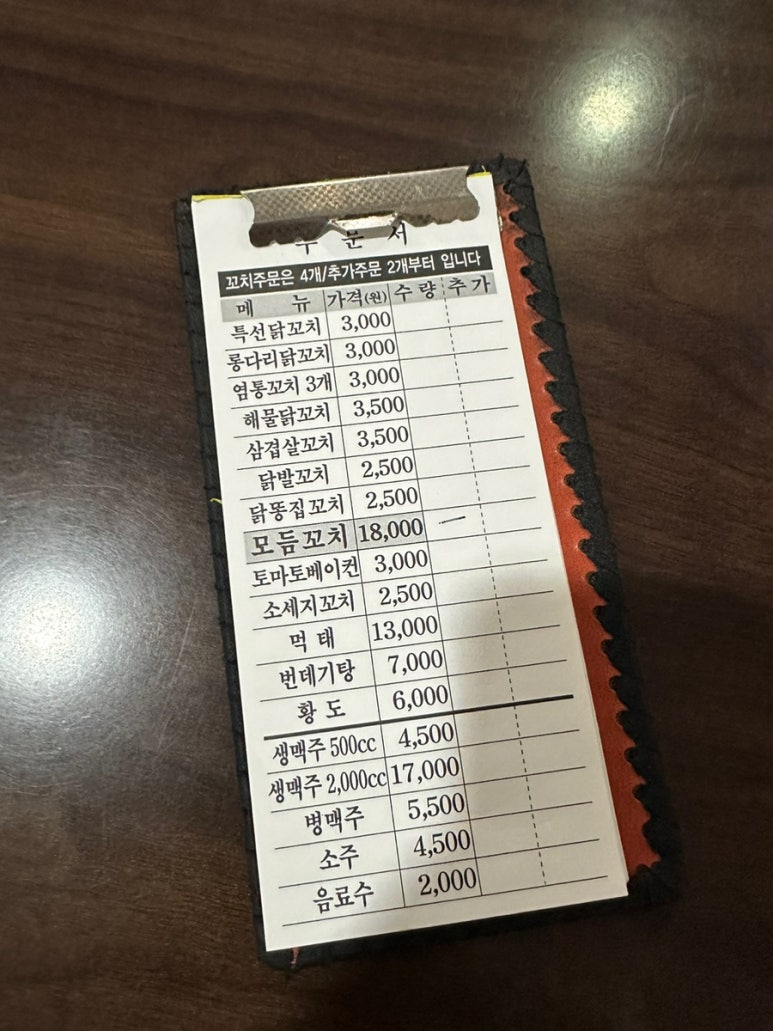 주 문 서
꼬치주문은 4개/추가주문 2개부터 입니다
메 뉴 가격(원) 수 량 추 가
특선닭꼬치 3,000
롱다리닭꼬치 3,000
염통꼬치 3개 3,000
해물닭꼬치 3,500
삼겹살꼬치 3,500
닭발꼬치 2,500
닭똥집꼬치 2,500
모듬꼬치 18,000
토마토베이컨 3,000
소세지꼬치 2,500
먹 태 13,000
번데기탕 7,000
황 도 6,000
생맥주 500cc 4,500
생맥주 2,000cc 17,000
병맥주 5,500
소주 4,500
음료수 2,000